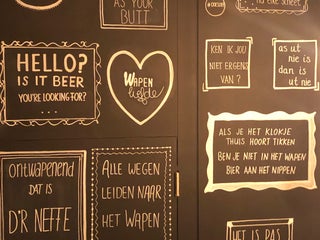 AS YOUR
BUTT
HELLO?
IS IT BEER
YOU'RE LOOKING FOR?
...
WAPEN
liefde
KEN IK JOU
NIET ERGENS
VAN ?
as ut
nie is
dan is
ut nie
ALS JE HET KLOKJE
THUIS HOORT TIKKEN
BEN JE NIET IN HET WAPEN
BIER AAN HET NIPPEN
ontwapenend
DAT IS
D'R NEFFE
ALLE WEGEN
LEIDEN NAAR
HET WAPEN
HET IS PAS